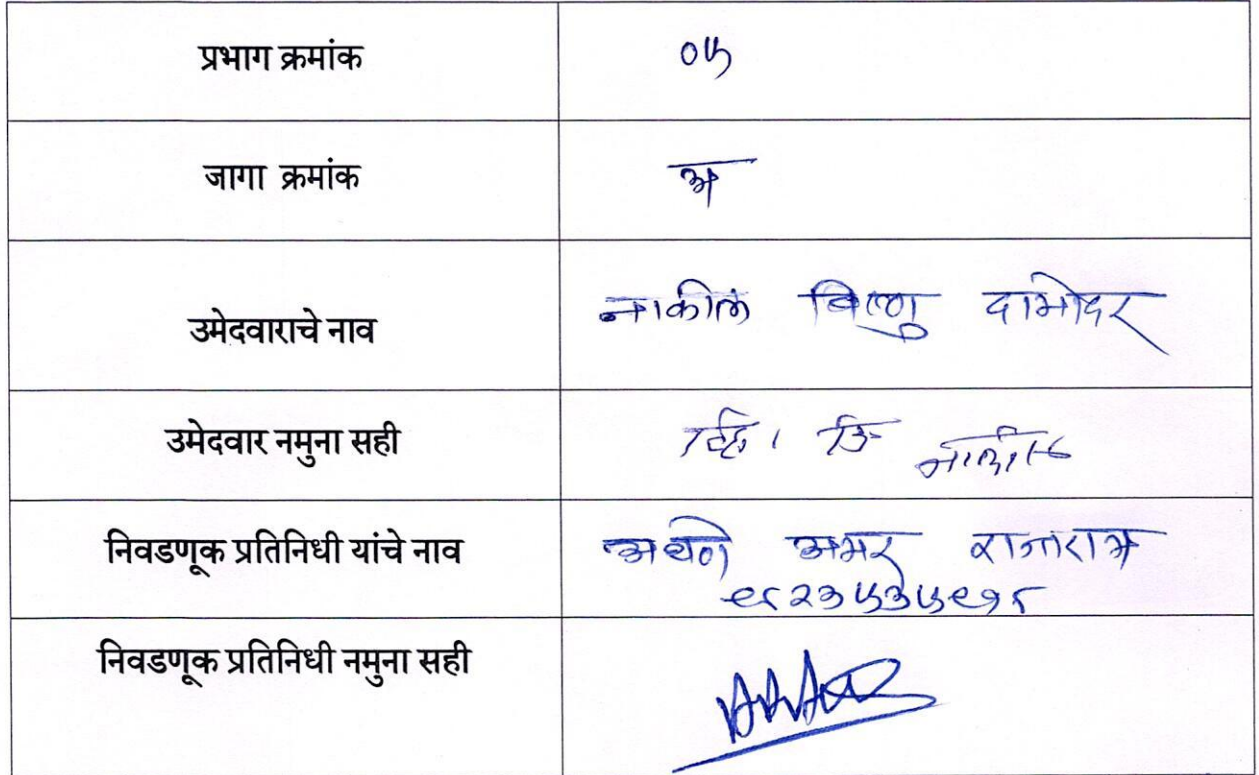 प्रभाग क्रमांक ०५
जागा क्रमांक अ
उमेदवाराचे नाव नाकील विष्णु दामोदर
उमेदवार नमुना सही
निवडणूक प्रतिनिधी यांचे नाव अथणे अमर राजाराम
९८२३५३५९१८
निवडणूक प्रतिनिधी नमुना सही